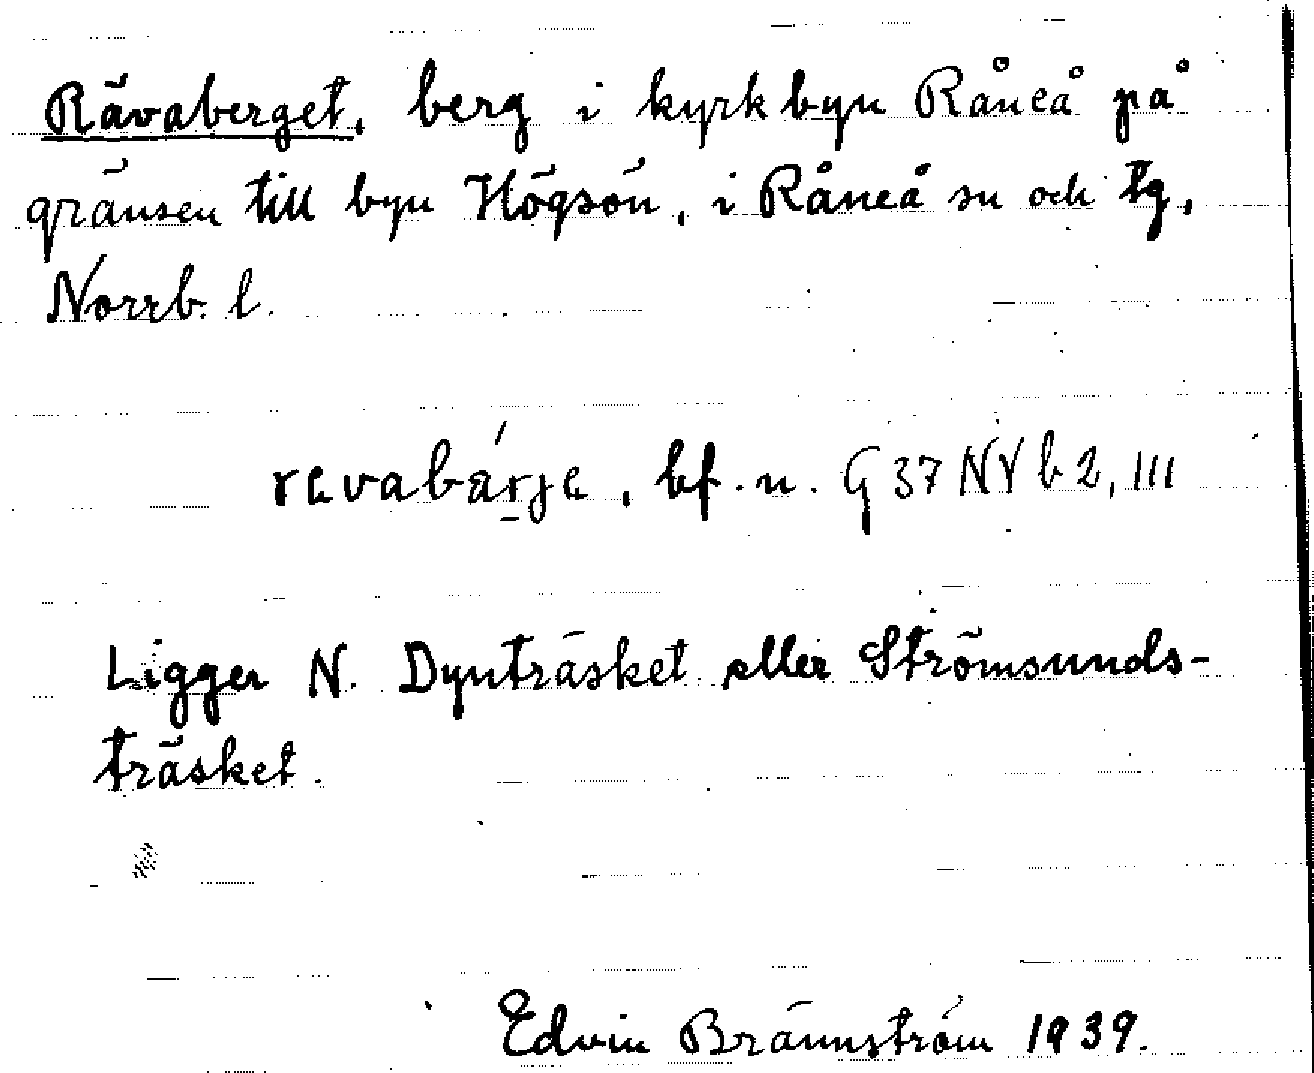 Rävaberget, berg i kyrkbyn Råneå på
gränsen till byn Högsön, i Råneå sn och tg,
Norrb. l.
revabárje, bf. n. G 37 NV b 2, III
Ligger N. Dynträsket eller Strömsunds-
träsket.
Edvin Brännström 1939.